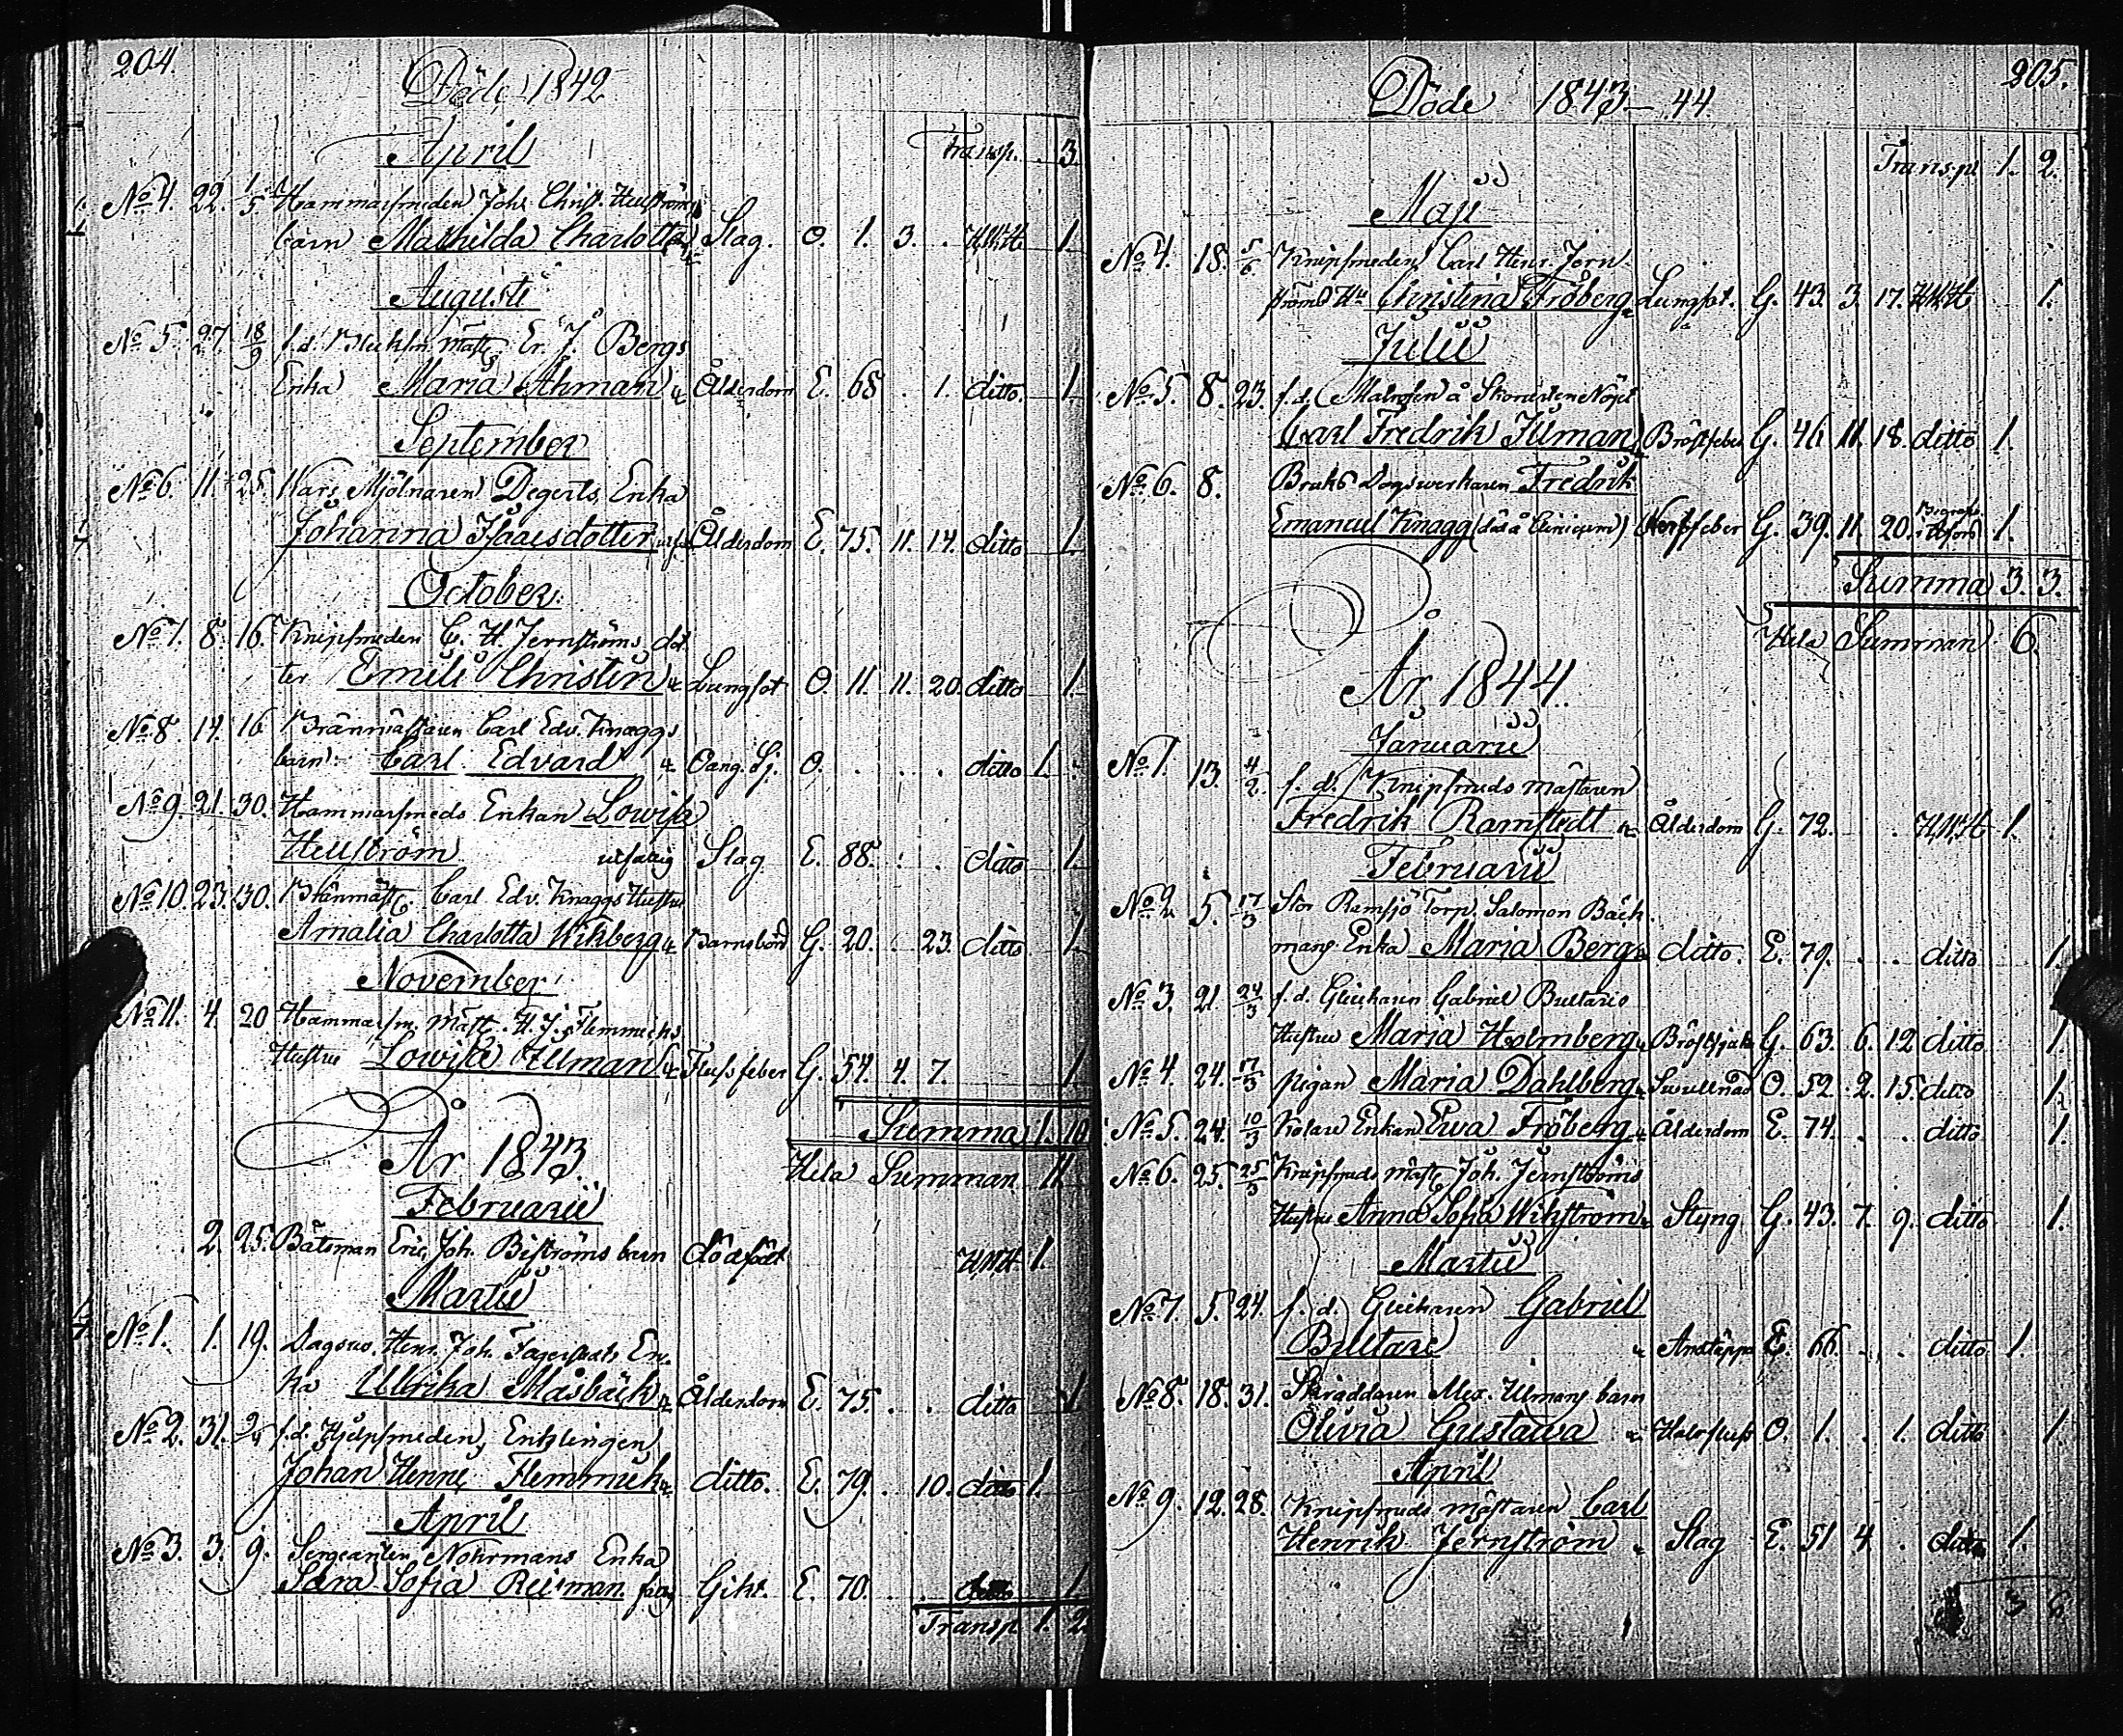 204.
Döde 1842
April
Transp. 3.
No 4. 22. 1/5 Hammarsmeden Joh. Christ. Hellströms
barn Mathilda Charlotta Slag. O. 1. 3. . HWH 1.
Augusti
No 5. 27. 18/9 f.d. Mäst. Er. J. Bergs
Enka Maria Åhman Ålderdom E. 68 . 1. ditto. 1.
September
No 6. 11. 25. Mjölnaren Degerts Enka
Johanna Isaacsdotter Ålderdom E. 75. 11. 14. ditto 1.
October.
No 7. 8. 16. Knipsmeden C. H. Jernströms dot
ter Emili Christin Lungsot O. 11. 11. 20. ditto 1.
No 8. 14. 16 Brännmästaren Carl Edv. Knaggs
barn Carl Edvard Oang. Sj. O. . . . ditto 1.
No 9. 21. 30. Hammarsmeds Enkan Lowisa
Hellström utfattig Slag E. 88. . . ditto 1.
No 10. 23. 30. Brännmäst. Carl Edv. Knaggs Hustru
Amalia Charlotta Wikberg Barnsbörd G. 20. . 23. ditto 1.
November
No 11. 4. 20 Hammarsm. Mäst. H. J. Flemmichs
Hustru Lowisa Illman Flussfeber G. 54. 4. 7. 1.
Summa 1. 10
År 1843
Hela Summan 11.
Februarii
2. 25. Båtsman Eric Joh. Biströms barn dödfödt HWH 1.
Martii
No 1. 1. 19. Dagsw. Henr. Joh. En-
ka Ullrika Masbäck Ålderdom E. 75. . . ditto 1.
No 2. 31. f.d. Hjelpsmeden, Enklingen
Johan Henric Flemmich ditto. E. 79. . 10. ditto 1.
April
No 3. 3. 9. Sergeanten Nohrmans Enka
Sara Sofia Reisman Gikt. E. 70. . . ditto 1.
Transp. 1. 2.
205.
Döde 1843–44.
Transp. 1. 2.
Maji
No 4. 18. 5/6 Knipsmeden Carl Henr. Jern-
ströms Hu Christina Fröberg Lungsot. G. 43. 3. 17. HWH 1.
Julii
No 5. 8. 23. f.d. Matrosen å Skonerten Nöjet
Carl Fredrik Illman Bröstfeber G. 46 11. 18. ditto 1.
No 6. 8. Bruks Dagswerkaren Fredrik
Emanuel Knagg (död å ) Nerffeber G. 39. 11. 20. 1.
Summa 3. 3.
Hela Summan 6.
År 1844.
Januarii
No 1. 13. 4/2 f.d. Knipsmeds mästaren
Fredrik Ramstedt Ålderdom G. 72. . . HWH 1.
Februarii
No 2. 5. 17/3 Stor Ramsjö Torp. Salomon Bäck-
mans Enka Maria Berg ditto. E. 79. . . ditto 1.
No 3. 21. 24/3 f.d. Gabriel Bultaris
Hustru Maria Holmberg Bröstsjuka G. 63. 6. 12 ditto 1.
No 4. 24. 17/3 pigan Maria Dahlberg Swullnad O. 52. 2. 15. ditto 1.
No 5. 24. 10/3 Kolare Enkan Ewa Fröberg Ålderdom E. 74. . . ditto 1.
No 6. 25. 25/3 Knipsmeds mäst. Joh. Jernströms
Hustru Anna Sofia Wikström Styng G. 43. 7. 9. ditto 1.
Martii
No 7. 5. 24. f.d. Gabriel
Bultare Andtäppa E. 66. . . ditto 1.
No 8. 18. 31. Skräddaren Alex. Illmans barn
Olivia Gustawa Halsfluss O. 1. . 1. ditto 1
April
No 9. 12. 28. Knipsmeds mästaren Carl
Henrik Jernström Slag E. 51 4 . ditto 1.
3 6